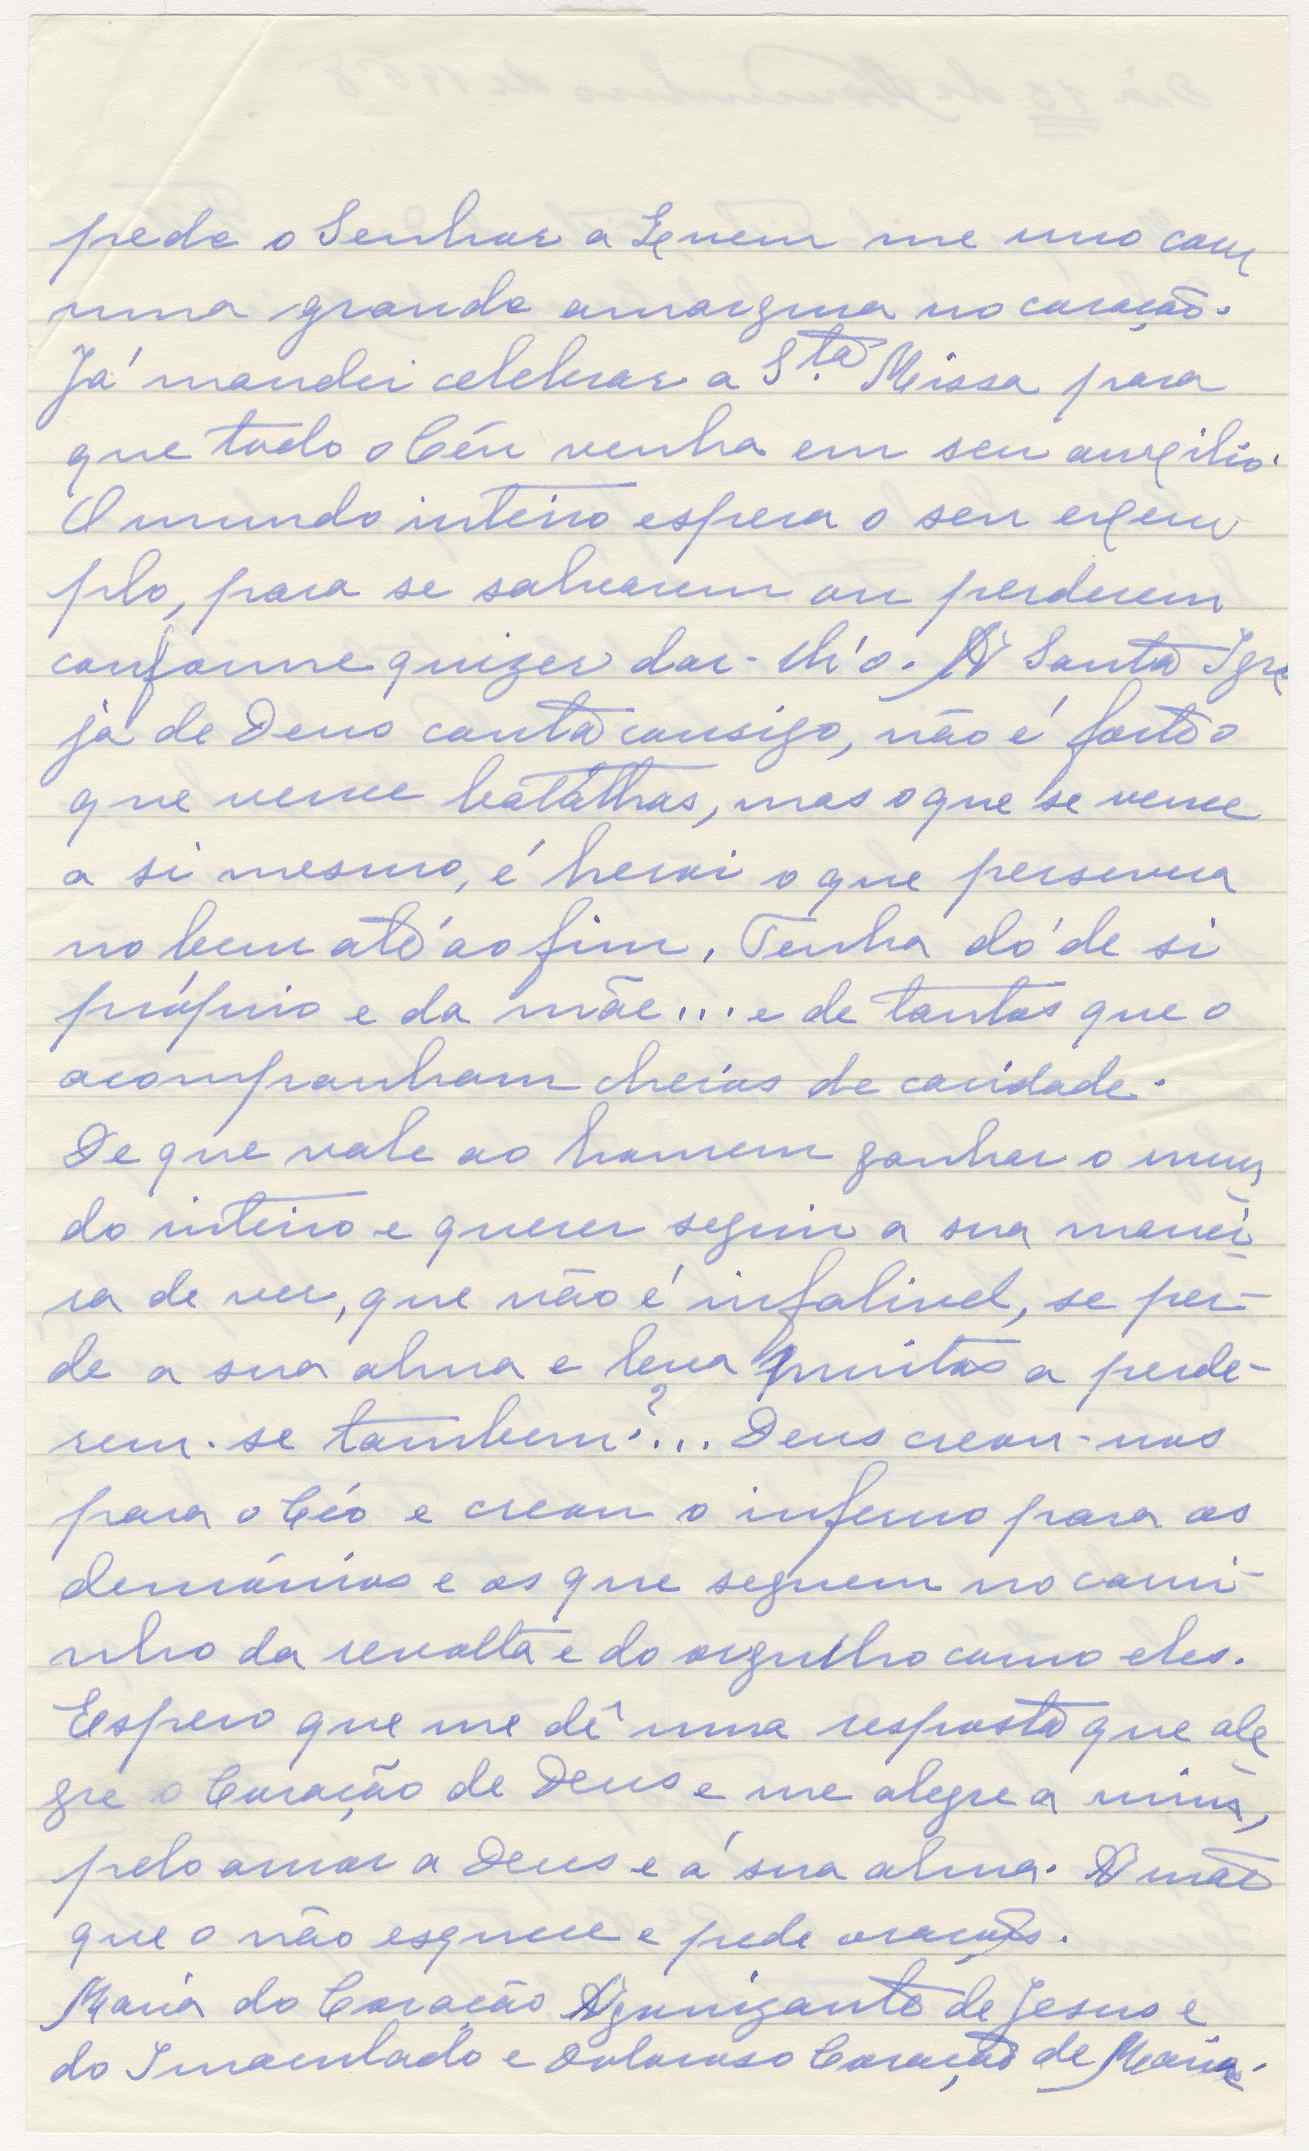 pede o Senhor a quem me uno com
uma grande amargura no coração.
Já mandei celebrar a S.ta Missa para
que todo o Céu venha em seu auxilio.
O mundo inteiro espera o seu exem
plo, para se salvarem ou perderem
conforme quizer dar-lh'o. A Santa Igre
ja de Deus conta consigo, não é forte o
que vence batalhas, mas o que se vence
a si mesmo, é heroi o que persevera
no bem até ao fim. Tenha dó de si
próprio e da mãe... e de tantos que o
acompanham cheios de caridade.
De que vale ao homem ganhar o mun
do inteiro e querer seguir a sua manei
ra de ver, que não é infalivel, se per-
de a sua alma e leva muitos a perde-
rem-se tambem?... Deus creou-nos
para o Céo e creou o inferno para os
demónios e os que seguem no cami-
nho da revolta e do orgulho como eles.
Espero que me dê uma resposta que ale
gre o Coração de Deus e me alegre a mim,
pelo amor a Deus e á sua alma. A mãe
que o não esquece e pede orações.
Maria do Coração Agonizante de Jesus e
do Imaculado e Doloroso Coração de Maria.